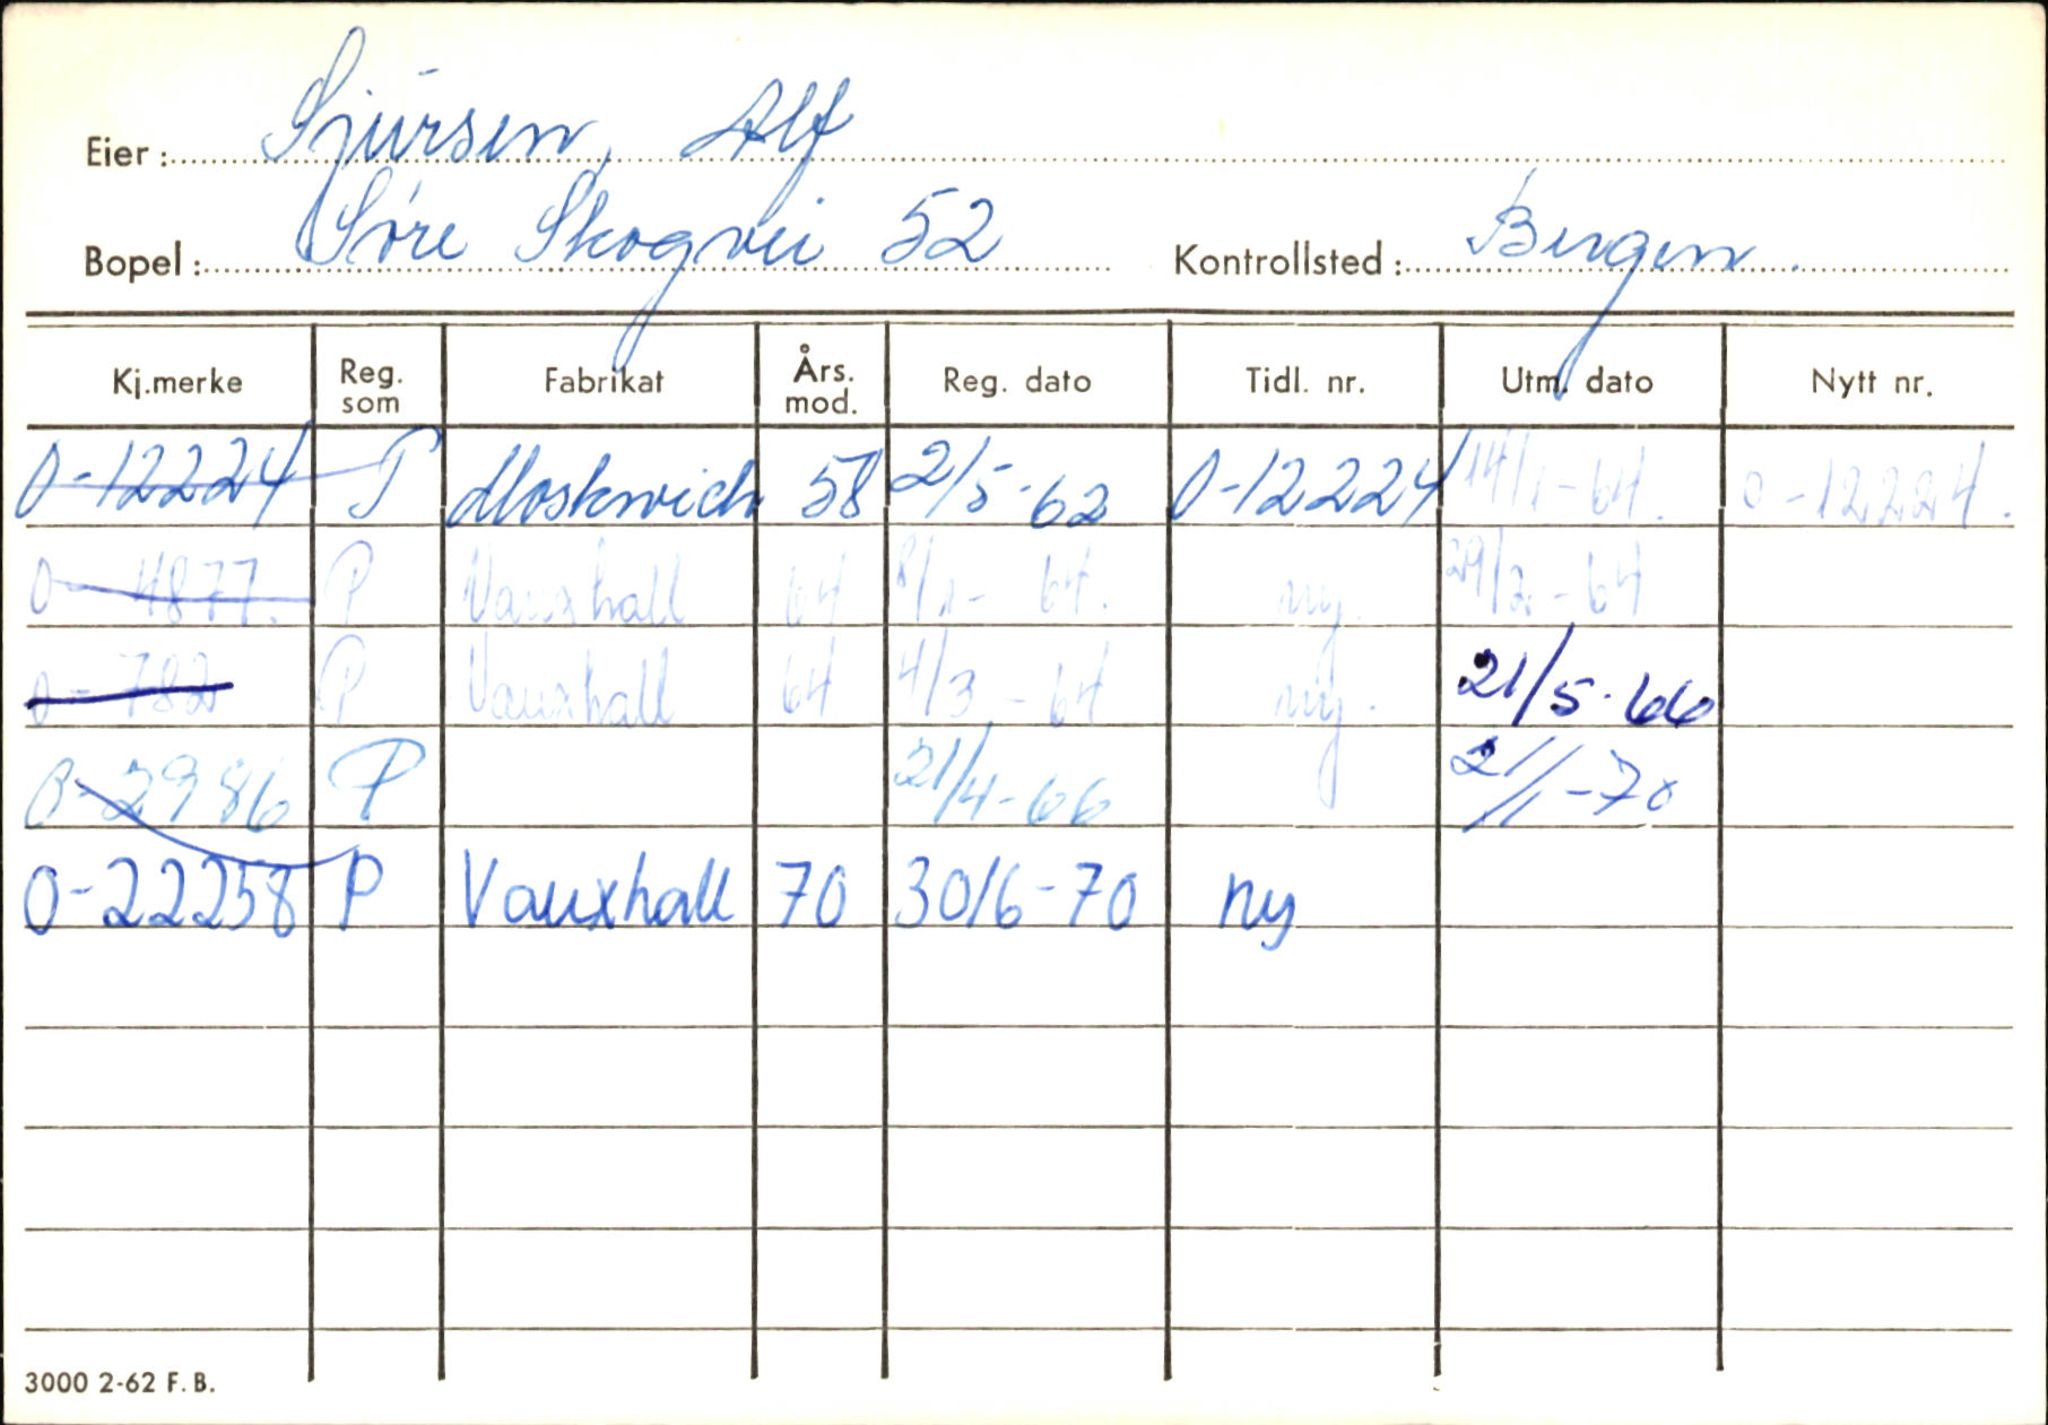 Eier: Sjursen, Alf
Bopel: Søre Skogvei 52 Kontrollsted: Bergen
Kj.merke Reg. som Fabrikat Års. mod. Reg. dato Tidl. nr. Utm. dato Nytt nr.
O-12224 P Moskwich 58 2/5-62 O-12224 14/1-64. O-12224.
O-4877. P Vauxhall 64 8/1-64. ny. 29/2-64
O-782 P Vauxhall 64 4/3-64 ny. 21/5-66
O-2986 P 21/4-66 21/1-70
O-22258 P Vauxhall 70 30/6-70 ny
3000 2-62 F.B.